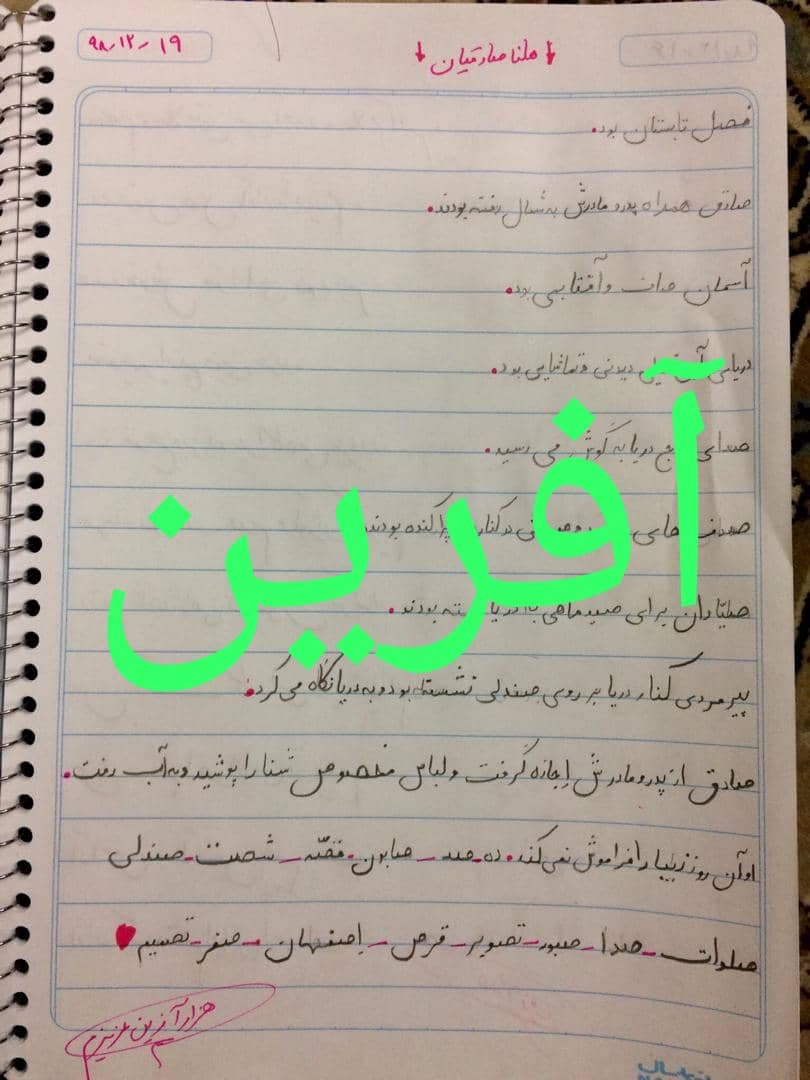 ۹۸-۱۲-۱۹
هلنا صادقیان
فصل تابستان بود.
صادق همراه پدر و مادرش به شمال رفته بودند.
آسمان صاف و آفتابی بود.
دریای آبی خیلی دیدنی و تماشایی بود.
صدای موج دریا به گوش می رسید.
صدف های در کنار پراکنده بودند
صیّادان برای صید ماهی به دریا رفته بودند.
پیرمردی کنار دریا بر روی صندلی نشسته بود و به دریا نگاه می کرد.
صادق از پدر و مادرش اِجازه گرفت و لباس مخصوص شنا را پوشید و به آب رفت.
او آن روز زیبا را فراموش نمی کند. ده صد - صابون - قصّه - شصت - صندلی
صلوات - صدا - صبور - تصویر - قرص - اِصفهان - صفر - تصمیم
هزار آفرین عزیزم
آفرین